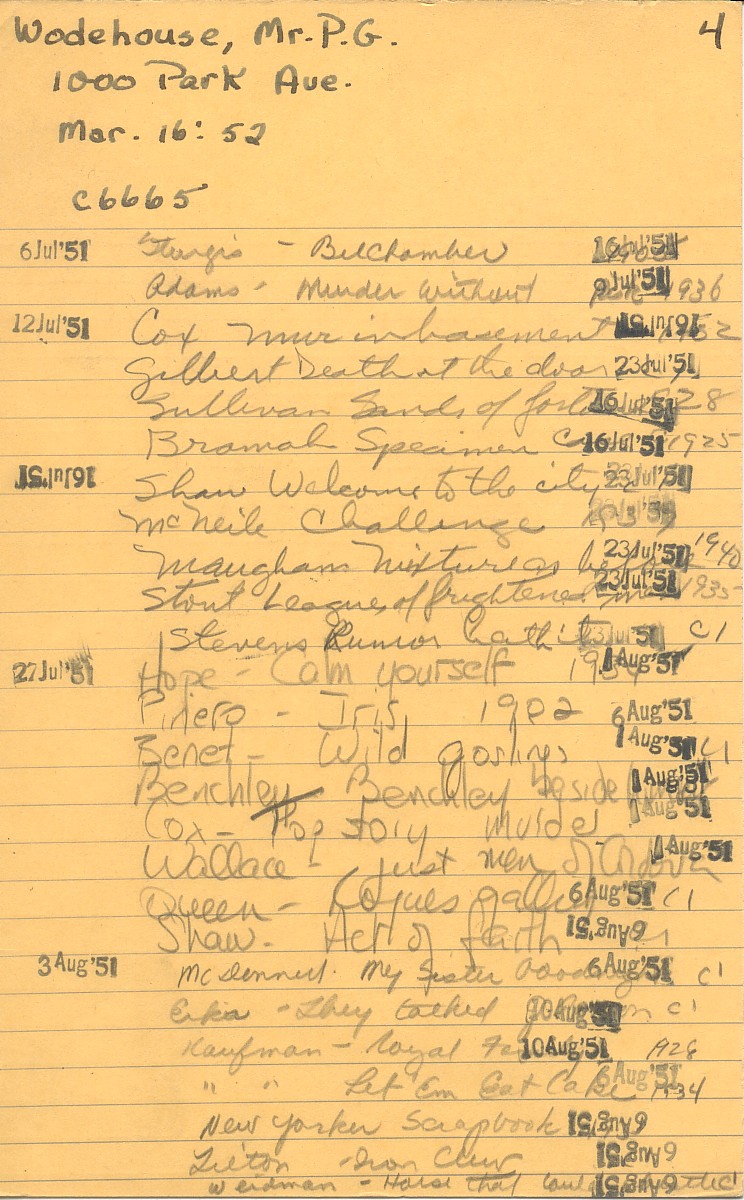 Wodehouse, Mr. P.G. 4
1000 Park Ave.
Mar. 16: 52
C6665
6 Jul '51 Sturgis - Belchamber 16 Jul '51
Adams - Murder without 9 Jul '51 1936
12 Jul '51 Cox mur in basement 16 Jul '51
Gilbert Death at the door 23 Jul '51
Sullivan Sands of 16 Jul '51 28
Bramah Specimen 16 Jul '51 1925
16 Jul '51 Shaw Welcome to the city 23 Jul '51
McNeile Challenge
Maugham Mixture as 23 Jul '51 1940
Stout League of frightened 23 Jul '51 1935
Stevens Rumor 23 Jul '51 C1
27 Jul '51 Hope - Calm yourself 1 Aug '51
Pinero - Iris 1902 6 Aug '51
Benet - Wild goslings 1 Aug '51 C1
Benchley - Benchley beside 1 Aug '51
Cox - Top story murder 1 Aug '51
Wallace - Just men of 1 Aug '51
Queen - Rogues gallery 6 Aug '51 C1
Shaw - Act of faith 6 Aug '51
3 Aug '51 My Sister 6 Aug '51 C1
Erika - They talked 10 Aug '51 C1
Kaufman - Royal 10 Aug '51 1928
" " Let 'Em Eat Cake 6 Aug '51
New Yorker Scrapbook 6 Aug '51
Iron Clew 6 Aug '51
Weidman - Horse that 6 Aug '51